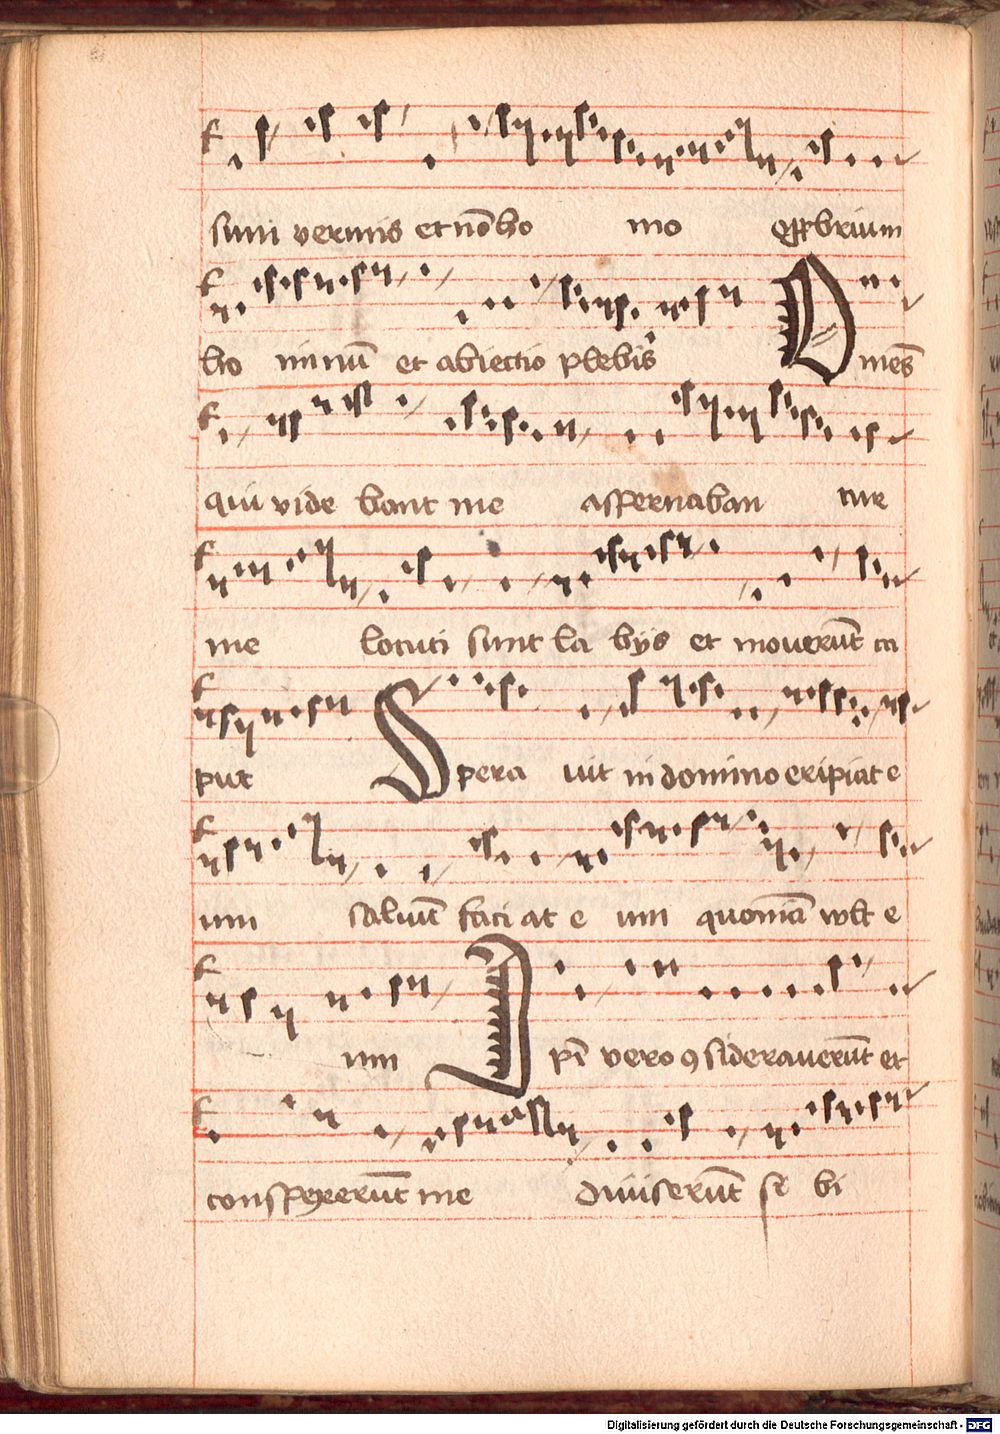 sum vermis et nō ho mo opprbrium
ho minū et abiectio plebis Omēs
qui vide bant me aspernaban tur
me locuti sunt la bijs et moverūt ca
put Spera uit in domino eripiat e
um saluūt faci at e um quoniā vult e
um Ipī vero ꝯsideraverūt et
conspexerūt me diuiserūt si bi
Digitalisierung gefördert durch die Deutsche Forschungsgemeinschaft - DFG